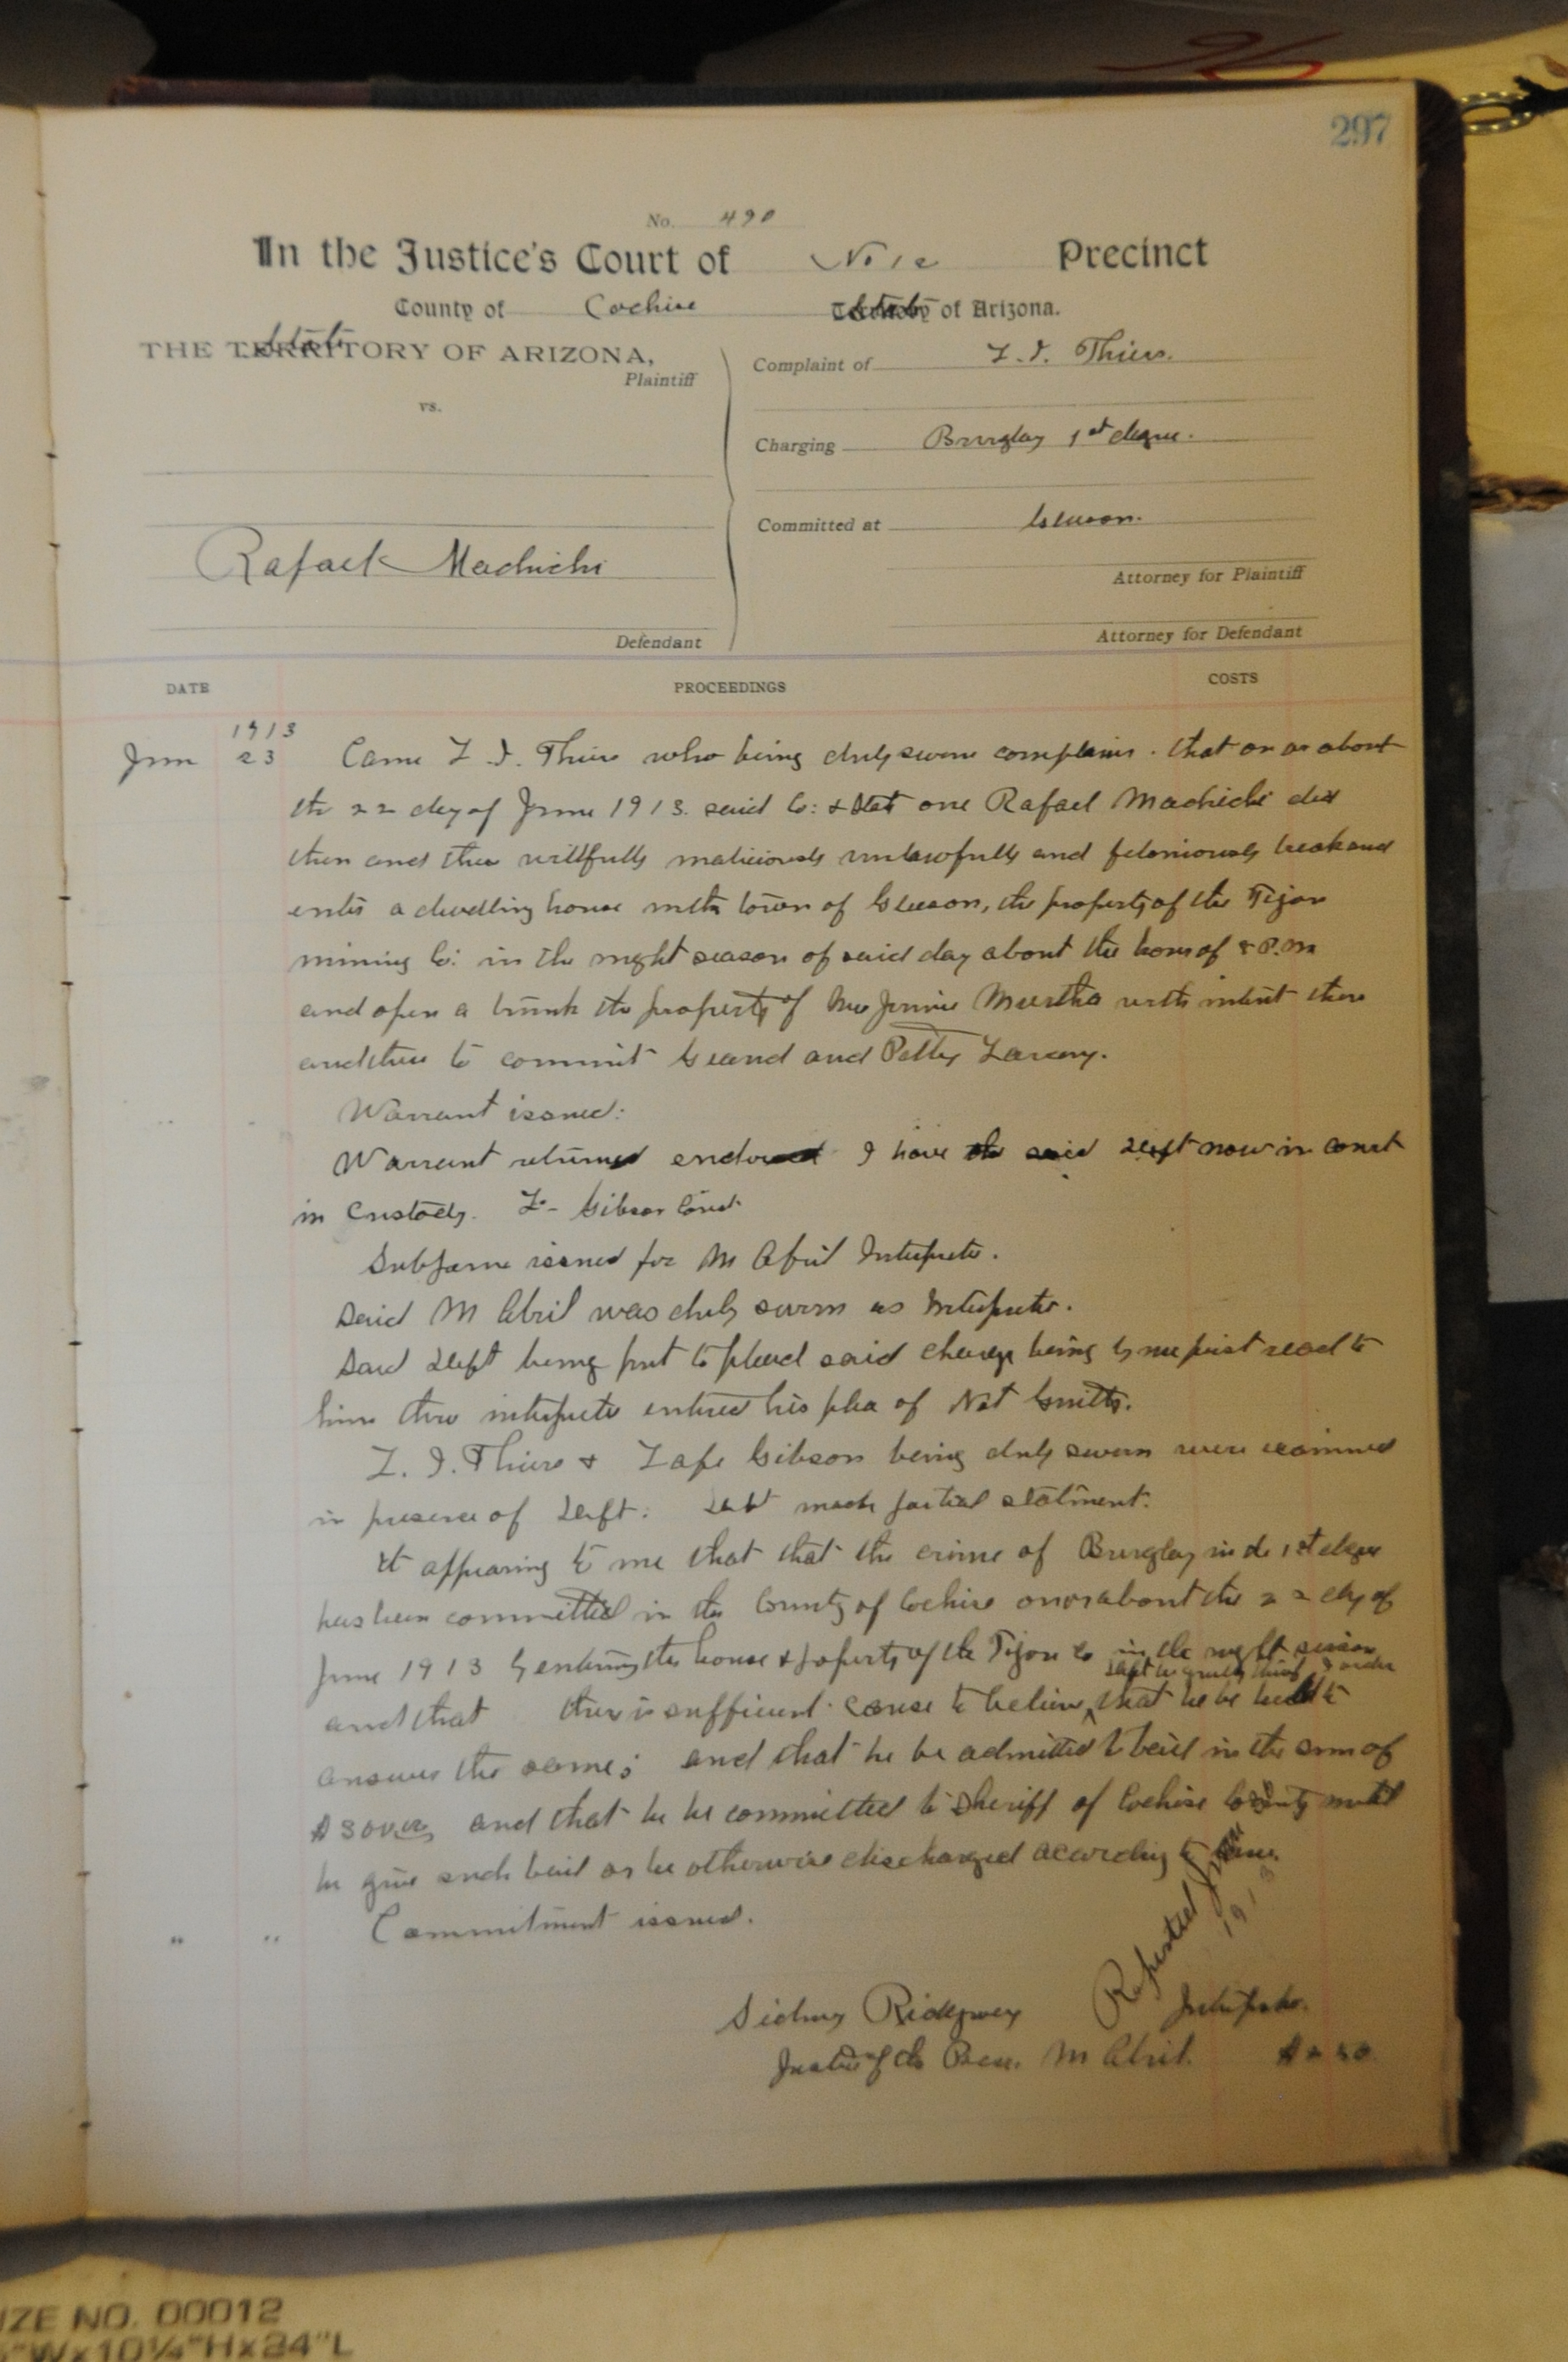 297
No. 490
In the Justice's Court of No 12 Precinct
County of Cochise State of Arizona.
State
THE TERRITORY OF ARIZONA,
Plaintiff
vs.
Complaint of Thiers.
Charging Burglary 1st degree.
Committed at Gleeson.
Rafael Machichi
Attorney for Plaintiff
Defendant
Attorney for Defendant
DATE PROCEEDINGS COSTS
1913
June 23 Came Thiers who being duly sworn complains. that on or about
the 22 day of June 1913. said Co: & State one Rafael Machichi did
then and there willfully maliciously unlawfully and feloniously break and
enter a dwelling house in the town of Gleeson, the property of the Tejon
mining Co: in the night season of said day about the hour of 8 P.M
and open a trunk the property of Mrs Jennie Murtha with intent then
and there to commit Grand and Petty Larceny.
Warrant issued:
Warrant returned endorsed I have the said Deft now in court
in Custody. L- Gibson Const
Subpoena issued for M Abril Interpreter.
Said M Abril was duly sworn as Interpreter.
Said Deft being put to plead said charge being by me first read to
him thru interpreter entered his plea of Not Guilty.
Thiers & Lafe Gibson being duly sworn were examined
in presence of Deft: Deft made partial statment.
It appearing to me that that the crime of Burglary in the 1st degree
has been committed in the County of Cochise on or about the 22 day of
June 1913 by entering the house & property of the Tejon Co in the night season
Deft be guilty & order
and that there is sufficient cause to believe that he be held to
answer the same; and that he be admitted to bail in the sum of
and that he be committed to Sheriff of Cochise County until
he give such bail or be otherwise discharged acording to law.
" " Commitment issued.
Reported June
1913
Sidney Ridgway Interpreter.
Justice of the Peace. M Abril. $2.50
IZE NO. 00012
"Wx10¼"Hx24"L